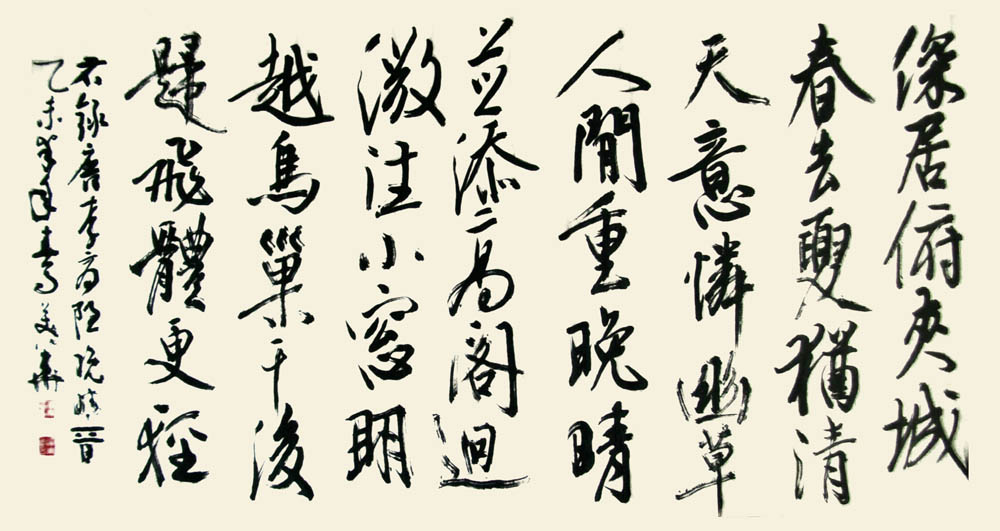 深居俯夾城
春去夏猶清
天意憐幽草
人間重晚晴
並添高閣迥
微注小窗明
越鳥巢干後
歸飛體更輕
右錄唐李商隱晚晴一首
乙未羊年